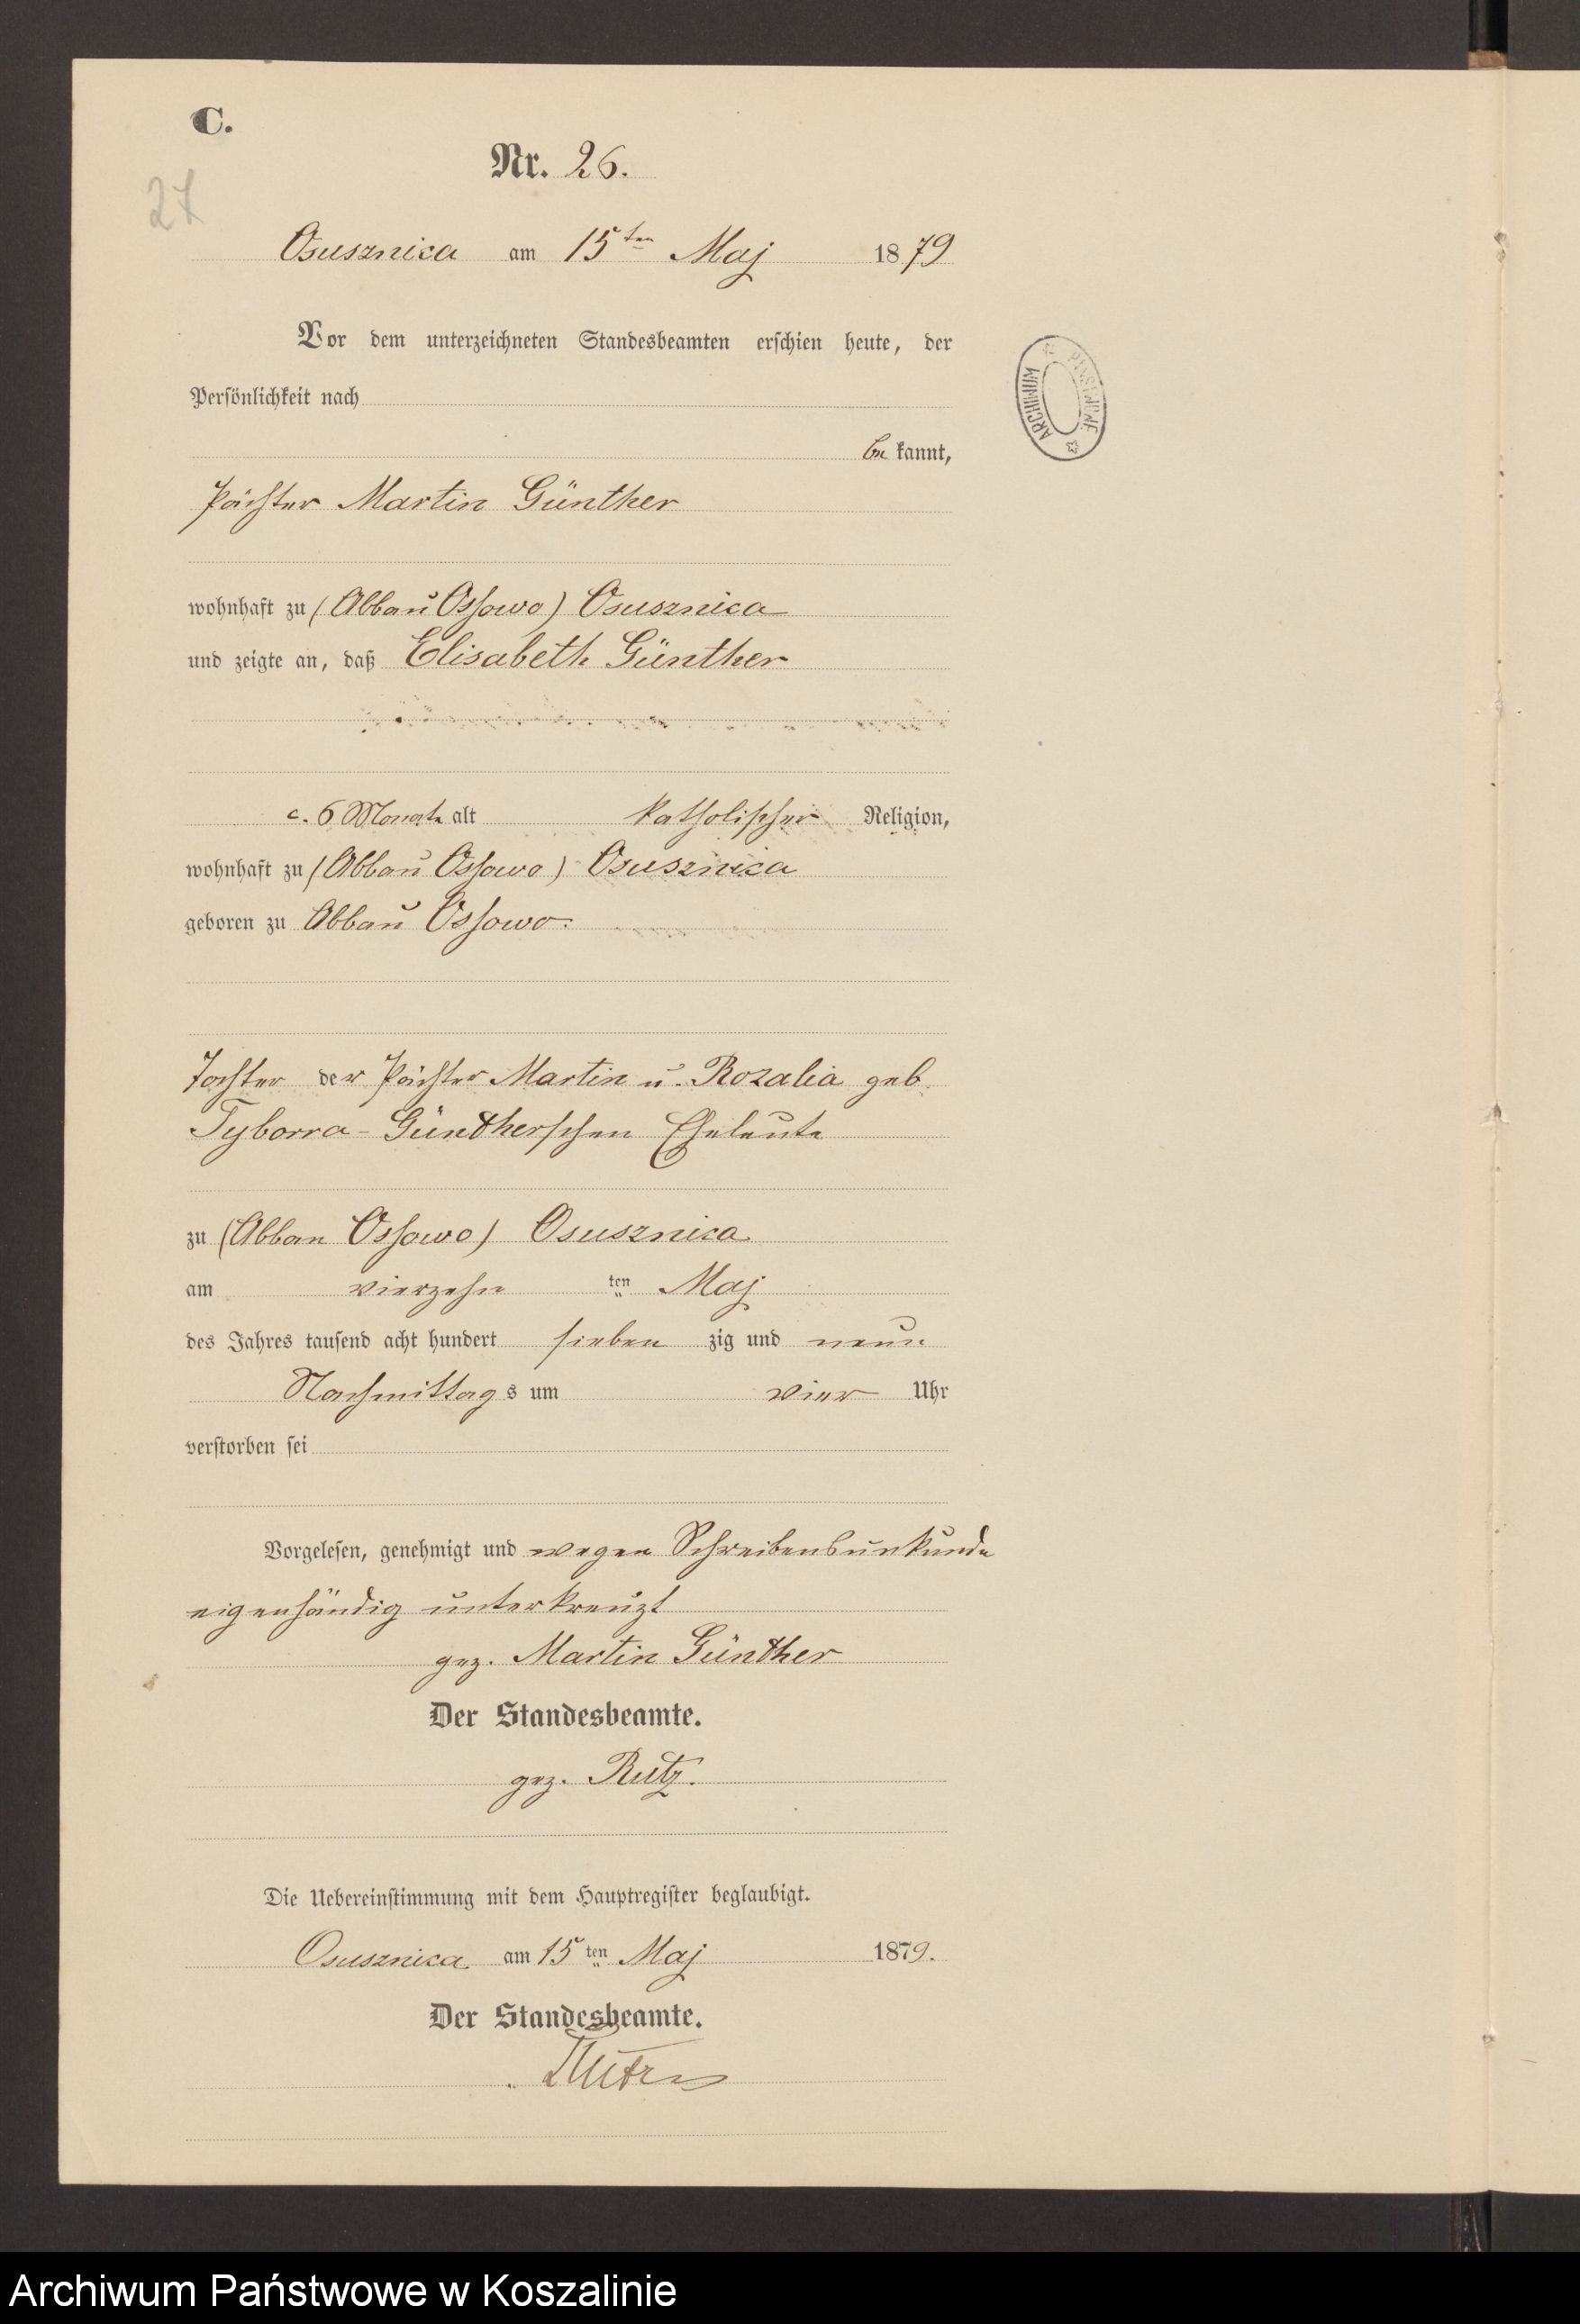 C.
Nr. 26.
27
Osusznica am 15ten Maj 1879
Vor dem unterzeichneten Standesbeamten erschien heute, der
Persönlichkeit nach
be kannt,
Pächter Martin Günther
wohnhaft zu (Abbau Ossowo) Osusznica
und zeigte an, daß Elisabeth Günther
c. 6 Monate alt katholischer Religion,
wohnhaft zu (Abbau Ossowo) Osusznica
geboren zu Abbau Ossowo.
Tochter der Pächter Martin u. Rozalia geb.
Tyborra-Güntherschen Eheleute
zu (Abbau Ossowo) Osusznica
am vierzehn ten Maj
des Jahres tausend acht hundert sieben zig und neun
Nachmittag s um vier Uhr
verstorben sei
Vorgelesen, genehmigt und wegen Schreibensunkunde
eigenhändig unterkreuzt
gez. Martin Günther
Der Standesbeamte.
gez. Rutz.
Die Uebereinstimmung mit dem Hauptregister beglaubigt.
Osusznica am 15 ten Maj 1879.
Der Standesbeamte.
Rutz
ARCHIWUM PAŃSTWOWE
Archiwum Państwowe w Koszalinie